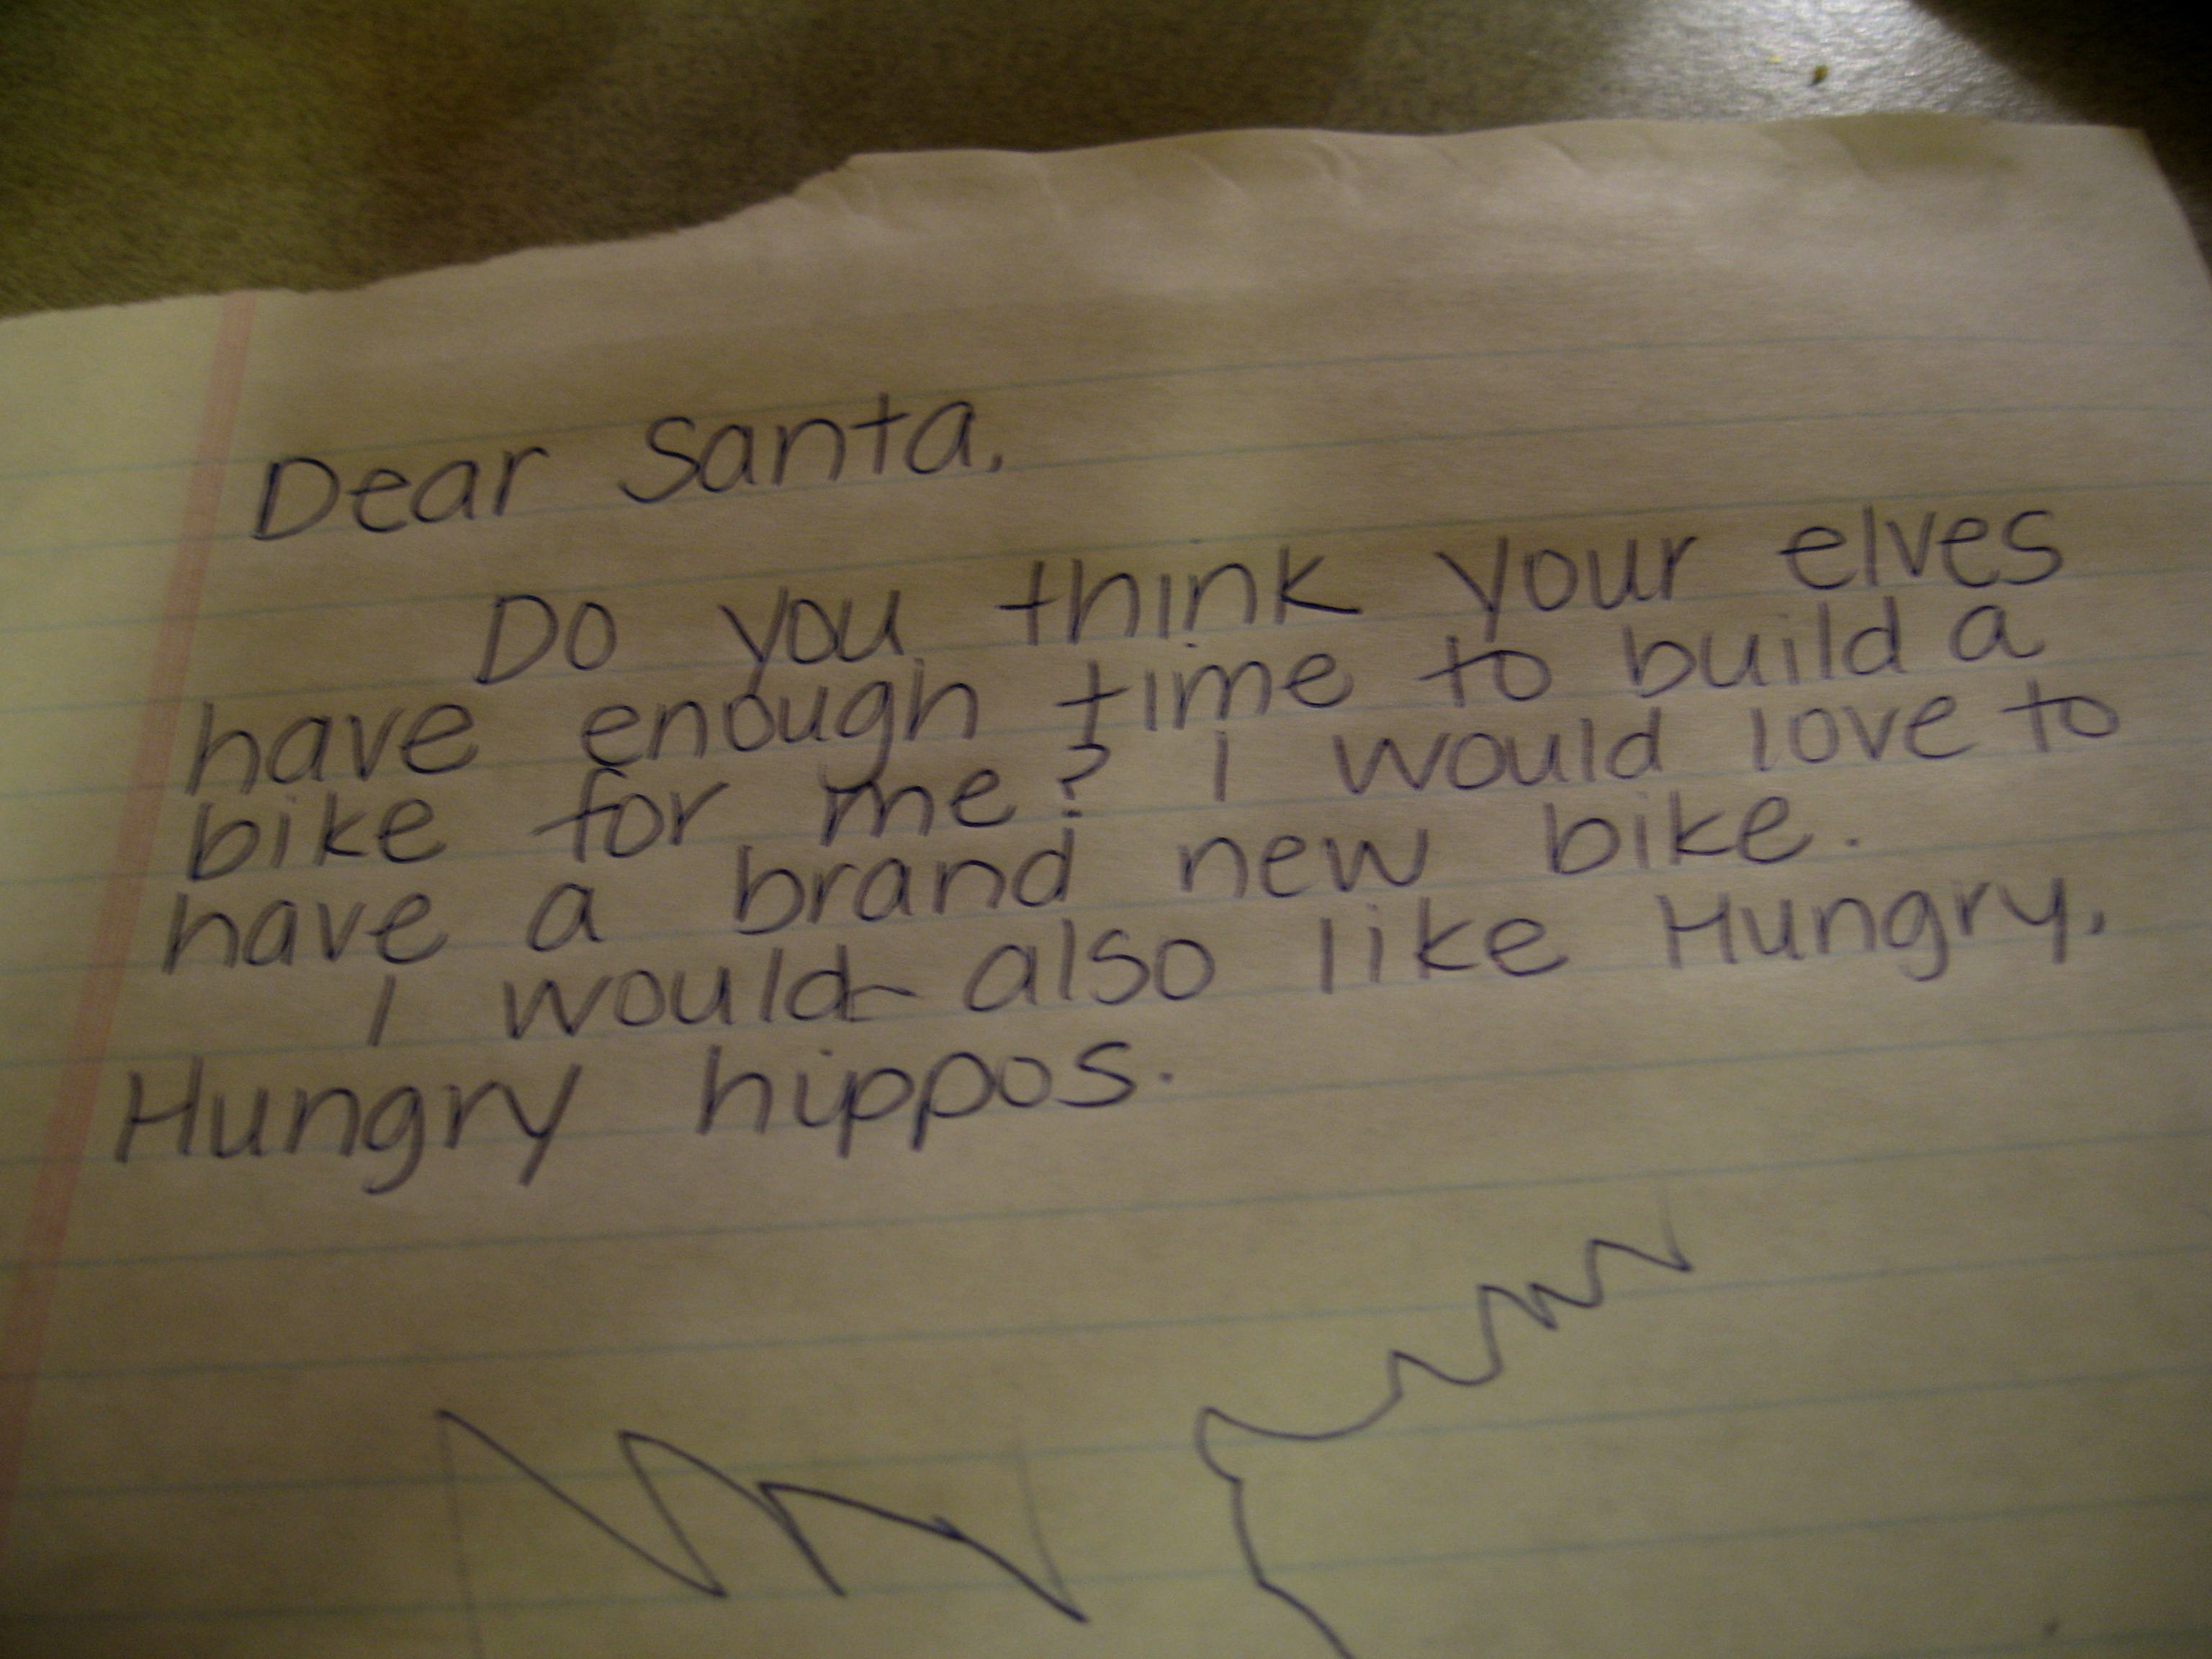 Dear Santa,
Do you think your elves
have enough time to build a
bike for me? I would love to
have a brand new bike.
I would also like Hungry,
Hungry hippos.